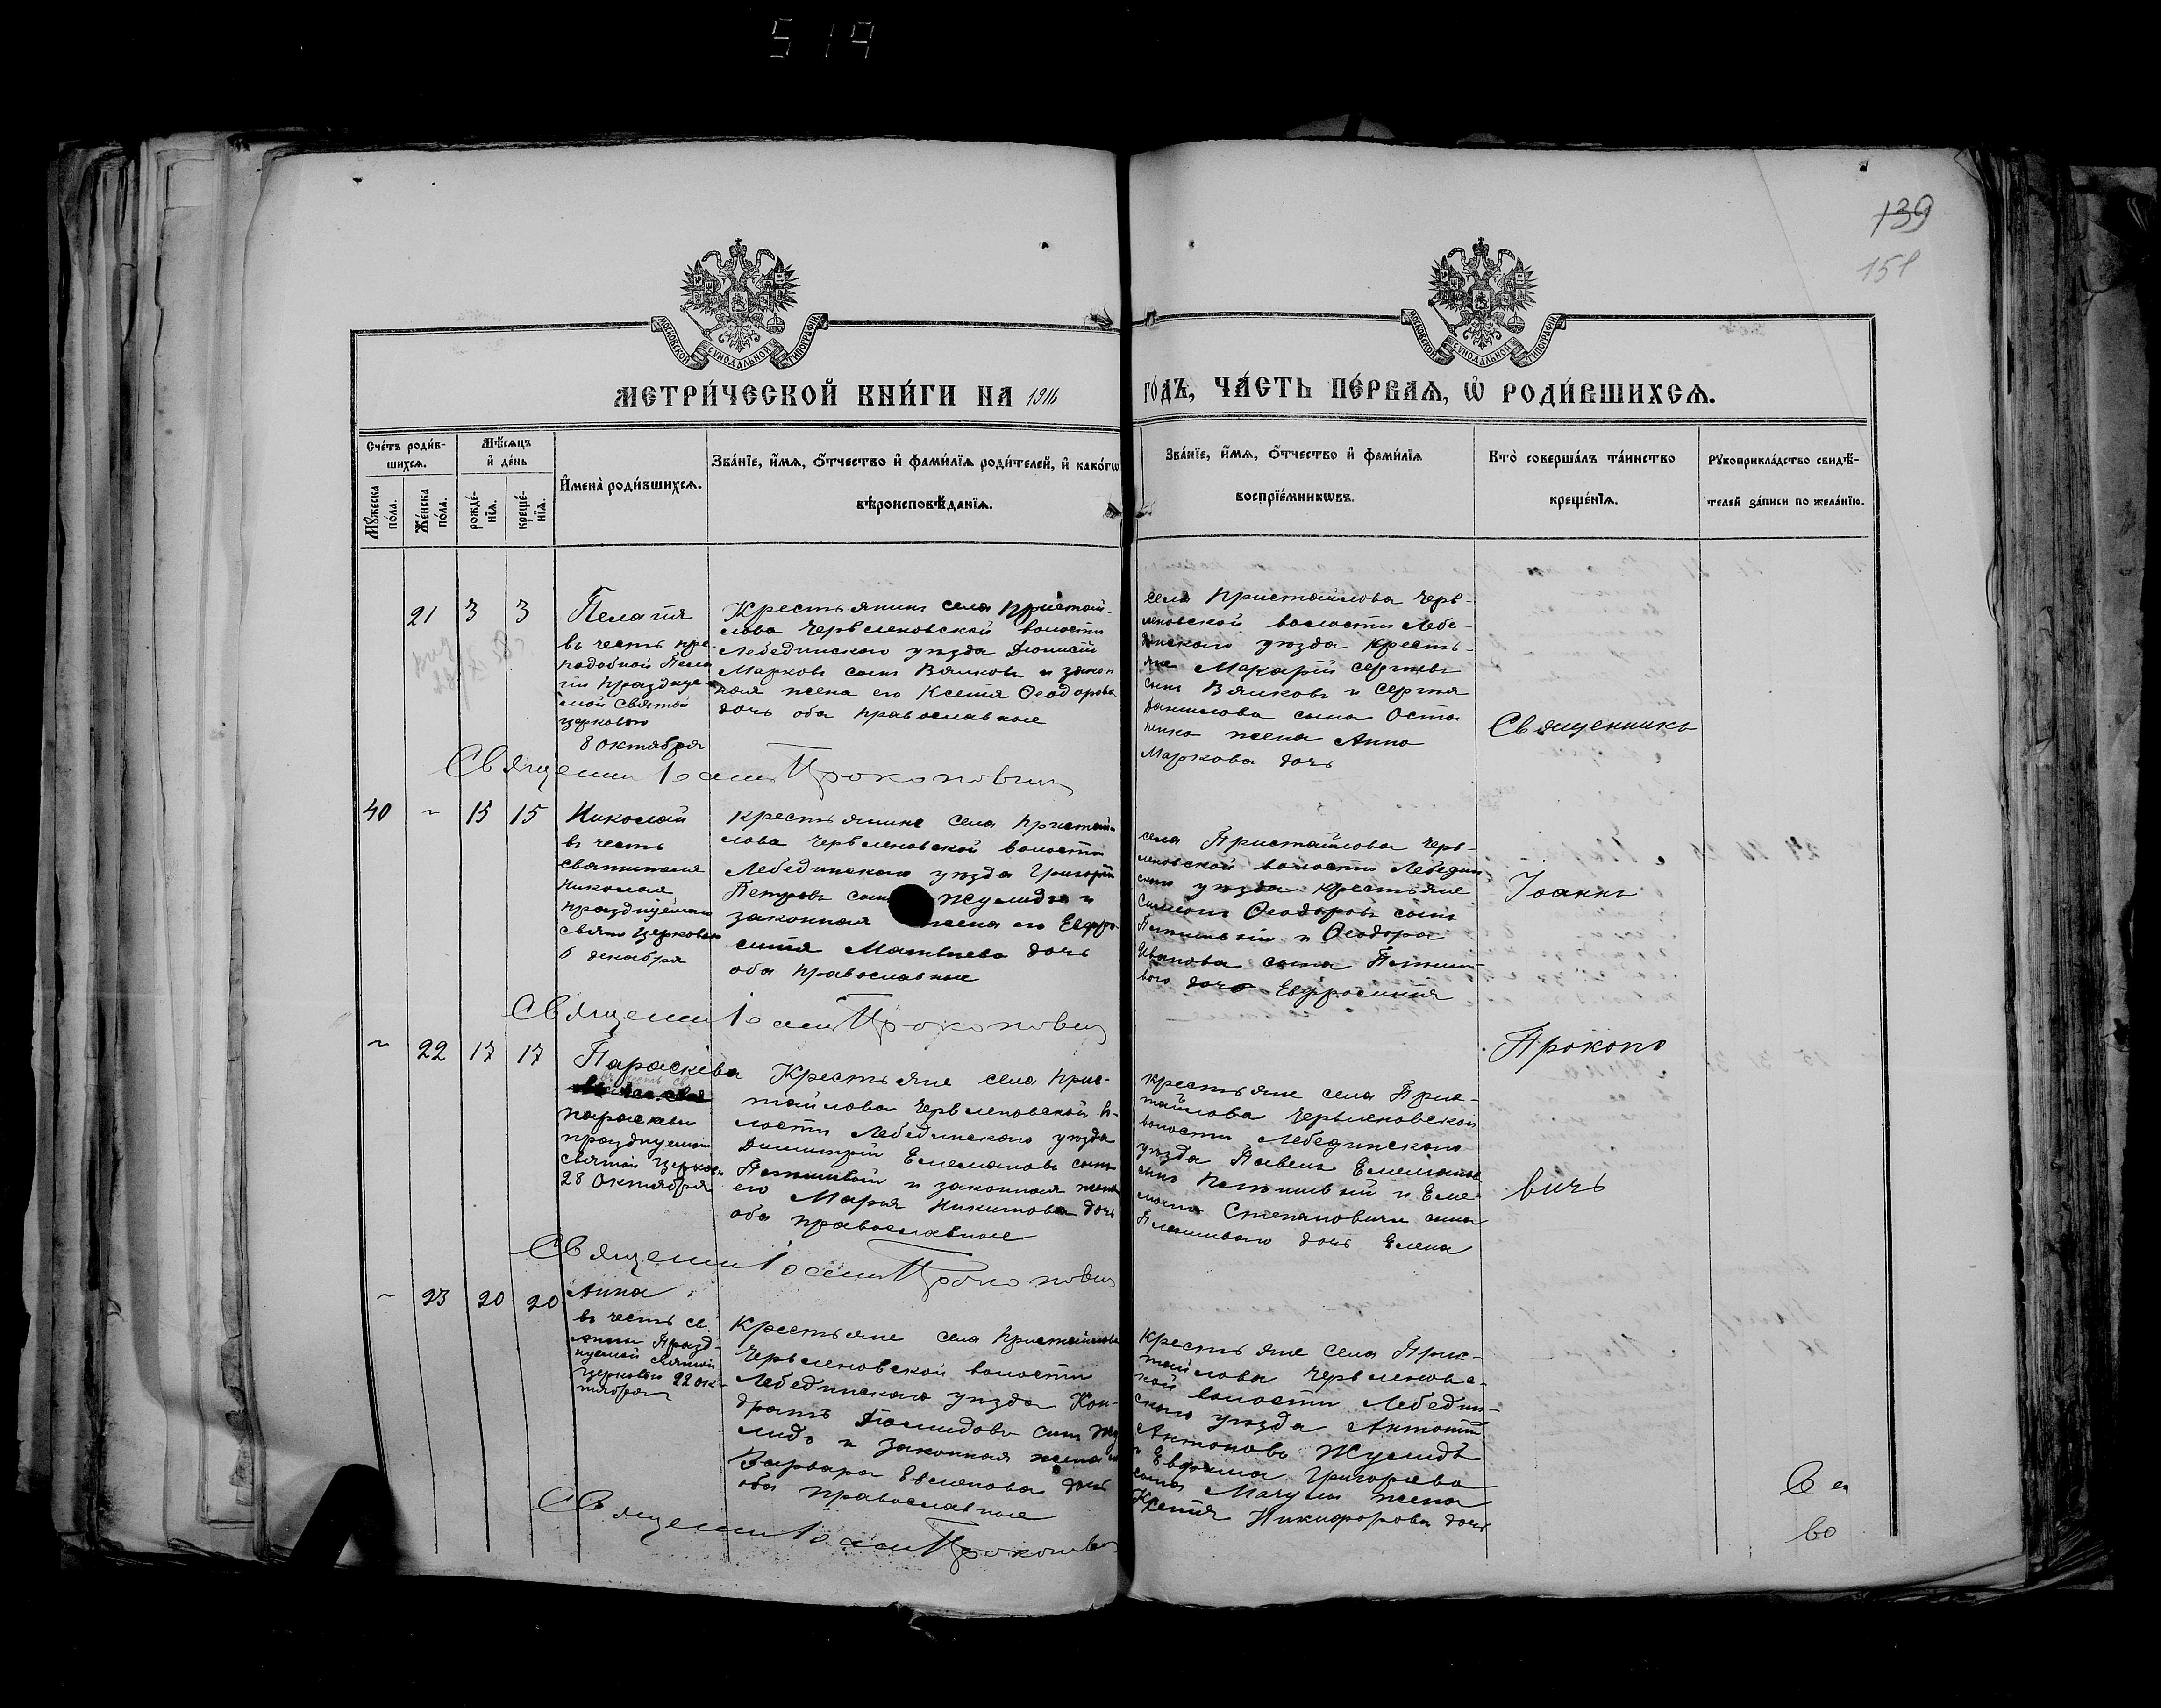 519
139
151
МОСКОВСКОЙ СУНОДАЛЬНОЙ ТИПОГРАФІИ
МОСКОВСКОЙ СУНОДАЛЬНОЙ ТИПОГРАФІИ
МЕТРИ́ЧЕСКОЙ КНИ́ГИ НА 1916 ГО́ДЪ, ЧА́СТЬ ПЕ́РВАѦ, Ѡ҆ РОДИ́ВШИХСѦ.
Сче́тъ роди́в-
шихсѧ.
Мѣ́сѧцъ
и҆ де́нь
Мꙋ́жеска
по́ла.
Же́нска
по́ла.
рожде́-
нїѧ.
креще́-
нїѧ.
И҆мена̀ роди́вшихсѧ.
Зва́нїе, и҆́мѧ, ѻ҆́тчество и҆ фами́лїѧ роди́телей, и҆ како́гѡ
вѣроисповѣ́данїѧ.
Зва́нїе, и҆́мѧ, ѻ҆́тчество и҆ фами́лїѧ
воспрїе́мникѡвъ.
Кто̀ соверша́лъ та́инство
креще́нїѧ.
Рꙋкоприкла́дство свидѣ́-
телей за́писи по жела́нїю.
21 3 3
Пелагія
въ честь пре-
подобной Пела
гіи празднуе-
мой святой
церковью
8 октября
Крестьянинъ села Пристай-
лова Червленовской волости
Лебединскаго уѣзда Діонисій
Марковъ сынъ Вялковъ и закон
ная жена его Ксенія Ѳеодорова
дочь оба православные
села Пристайлова Черв-
леновской волости Лебе-
динскаго уѣзда кресть-
яне Макарій Сергіевъ
сынъ Вялковъ и Сергія
Данилова сына Оста
пенко жена Анна
Маркова дочь
Священникъ
Священ. Іоаннъ Прокоповичъ
40 ~ 15 15
Николай
въ честь
святителя
Николая
празднуемаго
свят. церковью
6 декабря
крестьянинъ села Пристай-
лова Червленовской волости
Лебединскаго уѣзда Григорій
Петровъ сынъ Жулидъ и
законная жена его Евфро
синія Матвѣева дочь
оба православные
села Пристайлова Черв-
леновской волости Лебедин-
скаго уѣзда крестьяне
Симеонъ Ѳеодоровъ сынъ
и Ѳеодора
Иванова сына
ваго дочь Евфросинія
Іоаннъ
Священ. Іоаннъ Прокоповичъ
~ 22 17 17
Параскева
въ честь св.
параскевы
празднуемой
святой церковью
28 Октября
Крестьяне села Прис-
тайлова Червленовской во-
лости Лебединскаго уѣзда
Димитрій Емеліановъ сынъ
и законная жена
его Марія Никитова дочь
оба православные
крестьяне села Прис-
тайлова Червленовской
волости Лебединскаго
уѣзда Павелъ Емеліановъ
сынъ и Емел-
Степановича сына
дочь Елена
Прокопо
вичъ
Священ. Іоаннъ Прокоповичъ
~ 23 20 20
Анна
въ честь св.
Анны празд-
нуемой святой
церковью 22 ок-
тября
Крестьяне села Пристайлова
Червленовской волости
Лебединскаго уѣзда Кон-
дратъ сынъ Жу
лидъ и законная жена его
Варвара дочь
оба православные
крестьяне села Прис-
тайлова Червленовс-
кой волости Лебедин-
скаго уѣзда Антоній
Антоновъ Жулидъ
и Григорьева
сына жена
Ксенія Никифорова дочь
Священ. Іоаннъ Прокоповичъ